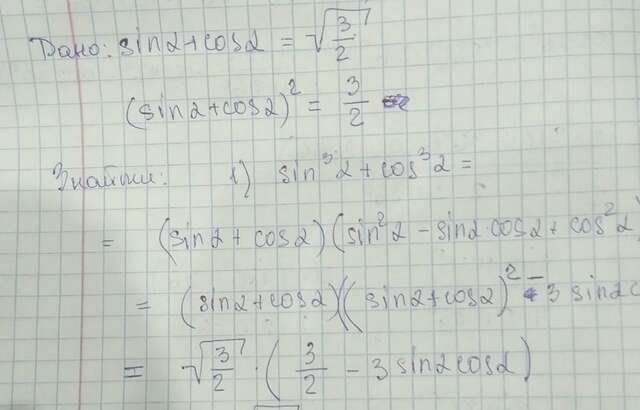 Дано: sinα + cosα = √(3/2)
(sinα + cosα)² = 3/2
Знайти: 1) sin³α + cos³α =
= (sinα + cosα)(sin²α - sinα cosα + cos²α
= (sinα + cosα)((sinα + cosα)² - 3 sinα c
= √(3/2) · (3/2 - 3 sinα cosα)